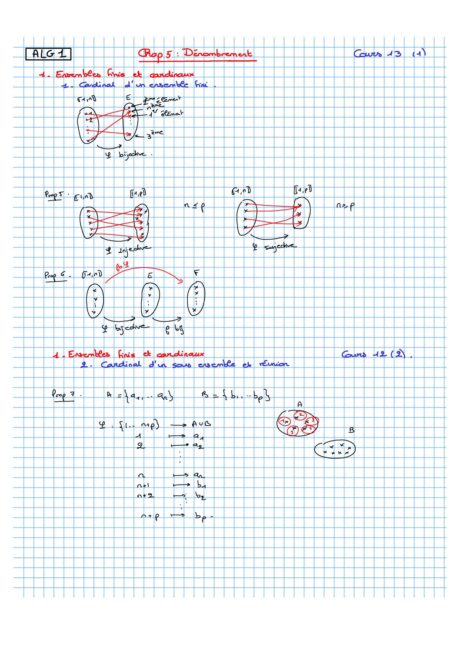 ALG1 Chap 5 : Dénombrement Cours 13 (1)
1. Ensembles finis et cardinaux
1. Cardinal d'un ensemble fini.
⟦1,n⟧ E 2ème élément
nème
1er élément
3ème
φ bijective.
Prop 5. ⟦1,n⟧ ⟦1,p⟧ n ≤ p ⟦1,n⟧ ⟦1,p⟧ n ≥ p
φ injective φ surjective
f∘φ
Prop 6. ⟦1,n⟧ E F
φ bijective f bij
1. Ensembles finis et cardinaux Cours 12 (2).
2. Cardinal d'un sous ensemble et réunion
Prop 7. A = {a1, .. an} B = {b1, .. bp}
A
B
φ : {1... n+p} → A∪B
1 ↦ a1
2 ↦ a2
n ↦ an
n+1 ↦ b1
n+2 ↦ b2
n+p ↦ bp.